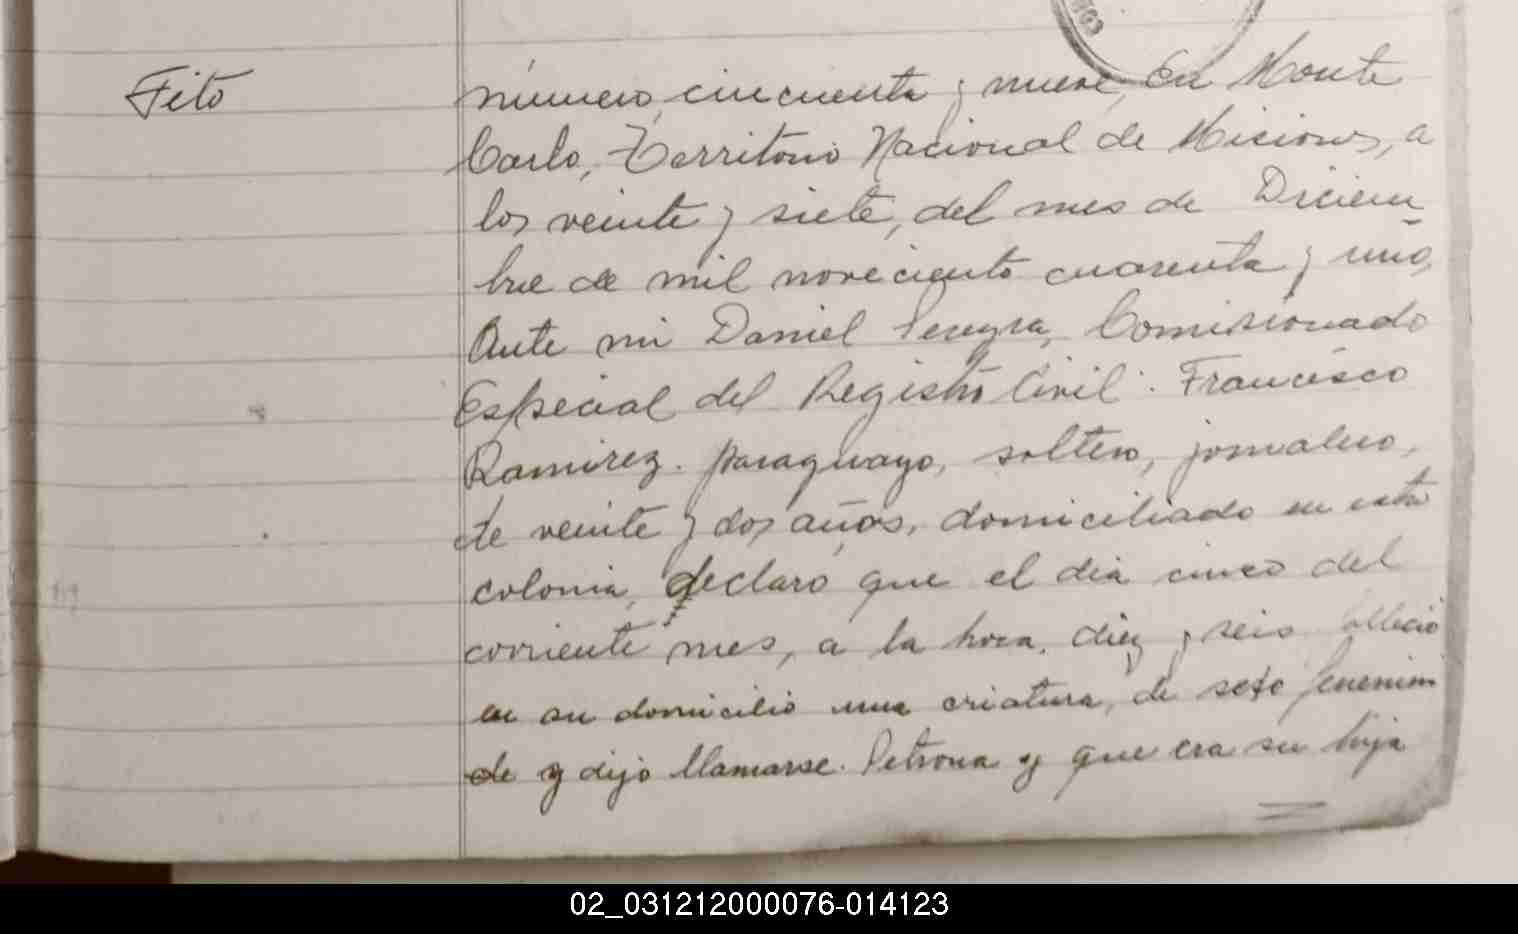 Fito
número cincuenta y nueve, En Monte
Carlo, Territorio Nacional de Misiones, a
los veinte y siete, del mes de Diciem
bre de mil noveciento cuarenta y uno,
Ante mi Daniel Pereyra, Comisionado
Especial del Registro Civil. Francisco
Ramirez. paraguayo, soltero, jornalero,
de veinte y dos años, domiciliado en esta
colonia, declaró que el dia cinco del
corriente mes, a la hora, diez y seis fallecio
en su domicilio una criatura, de sexo femenino
de y dijo llamarse. Petrona y que era su hija
02_031212000076-014123